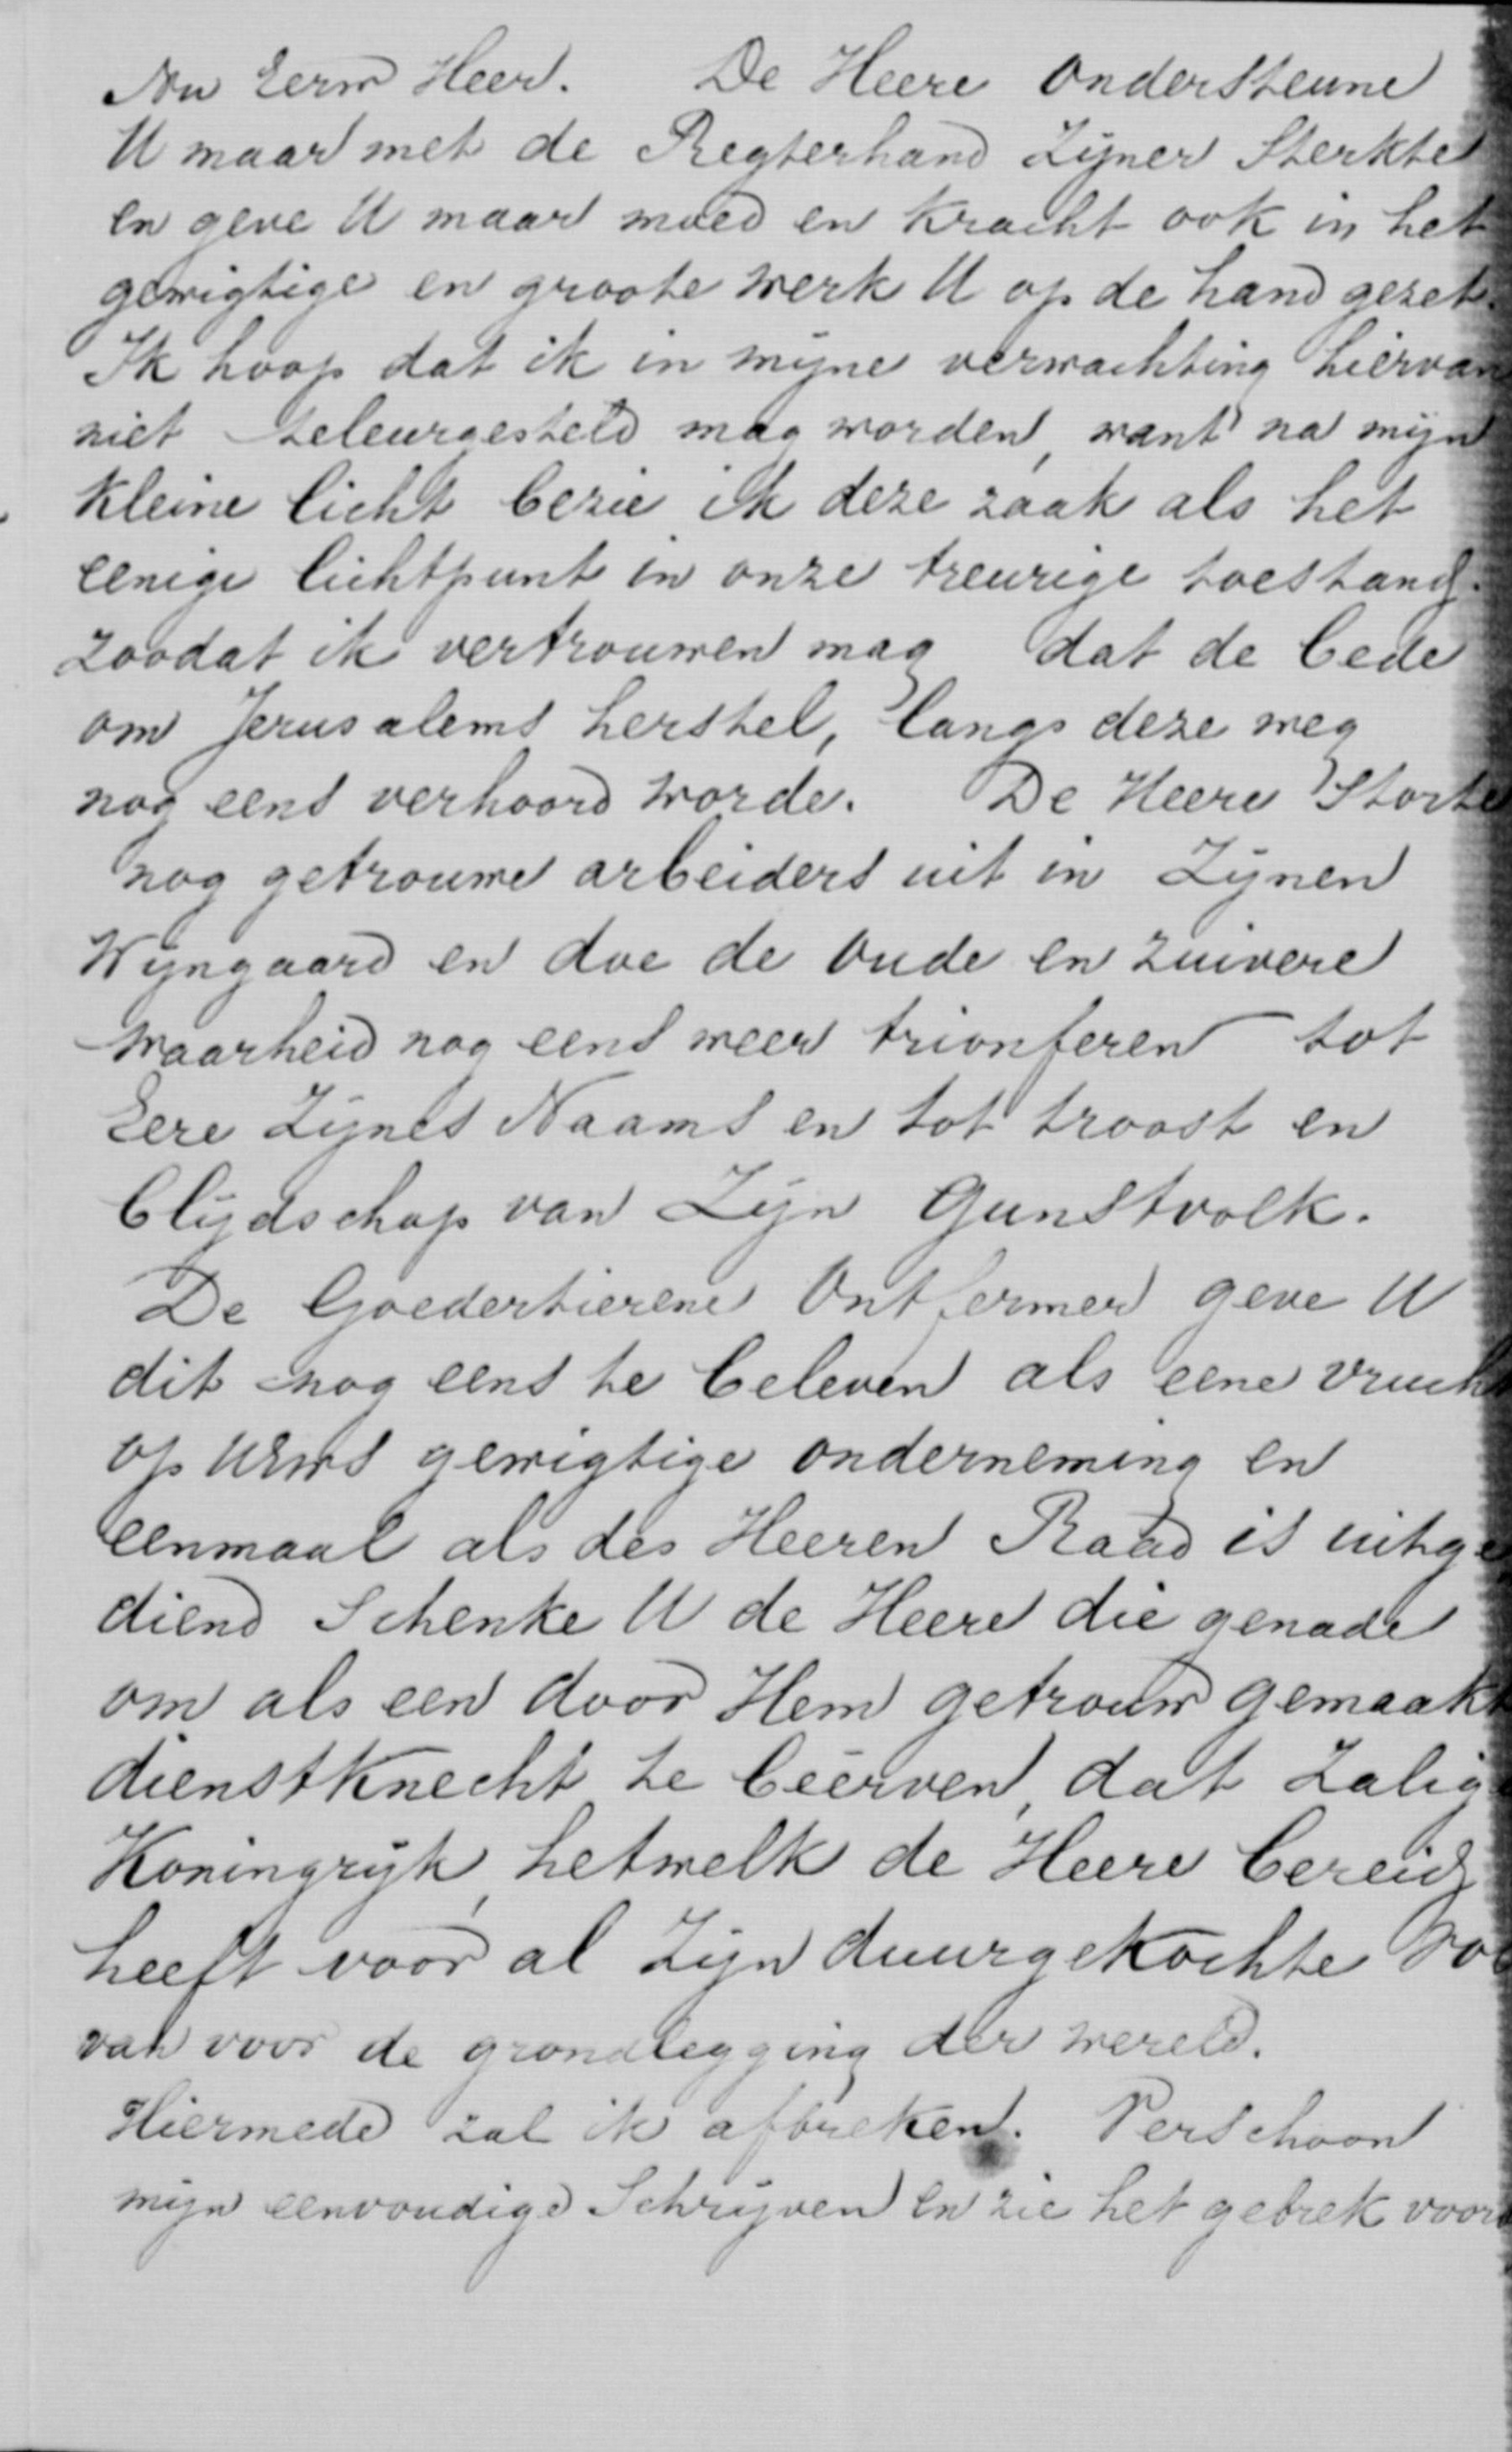 Nu Eerw Heer. De Heere ondersteune
U maar met de Regterhand Zijner Sterkte
en geve U maar moed en kracht ook in het
gewigtige en groote werk U op de hand gezet.
Ik hoop dat ik in mijne verwachting hiervan
niet teleurgesteld mag worden, want na mijn
kleine licht bezie ik deze zaak als het
eenige lichtpunt in onze treurige toestand.
zoodat ik vertrouwen mag dat de bede
om Jerusalems herstel, langs deze weg
nog eens verhoord worde. De Heere Storte
nog getrouwe arbeiders uit in Zijnen
Wijngaard en doe de oude en zuivere
waarheid nog eens weer trionferen tot
Eere Zijnes Naams en tot troost en
blijdschap van Zijn Gunstvolk.
De Goedertierene Ontfermer geve U
dit nog eens te beleven als eene vrucht
op UEws gewigtige onderneming en
eenmaal als des Heeren Raad is uitge
diend Schenke U de Heere die genade
om als een door Hem getrouw gemaakt
dienstknecht te beërven, dat Zalig
Koningrijk, hetwelk de Heere bereid
heeft voor al Zijn duurgekochte vol
van voor de grondlegging der wereld.
Hiermede zal ik afbreken. Verschoon
mijn eenvoudige Schrijven en zie het gebrek voor